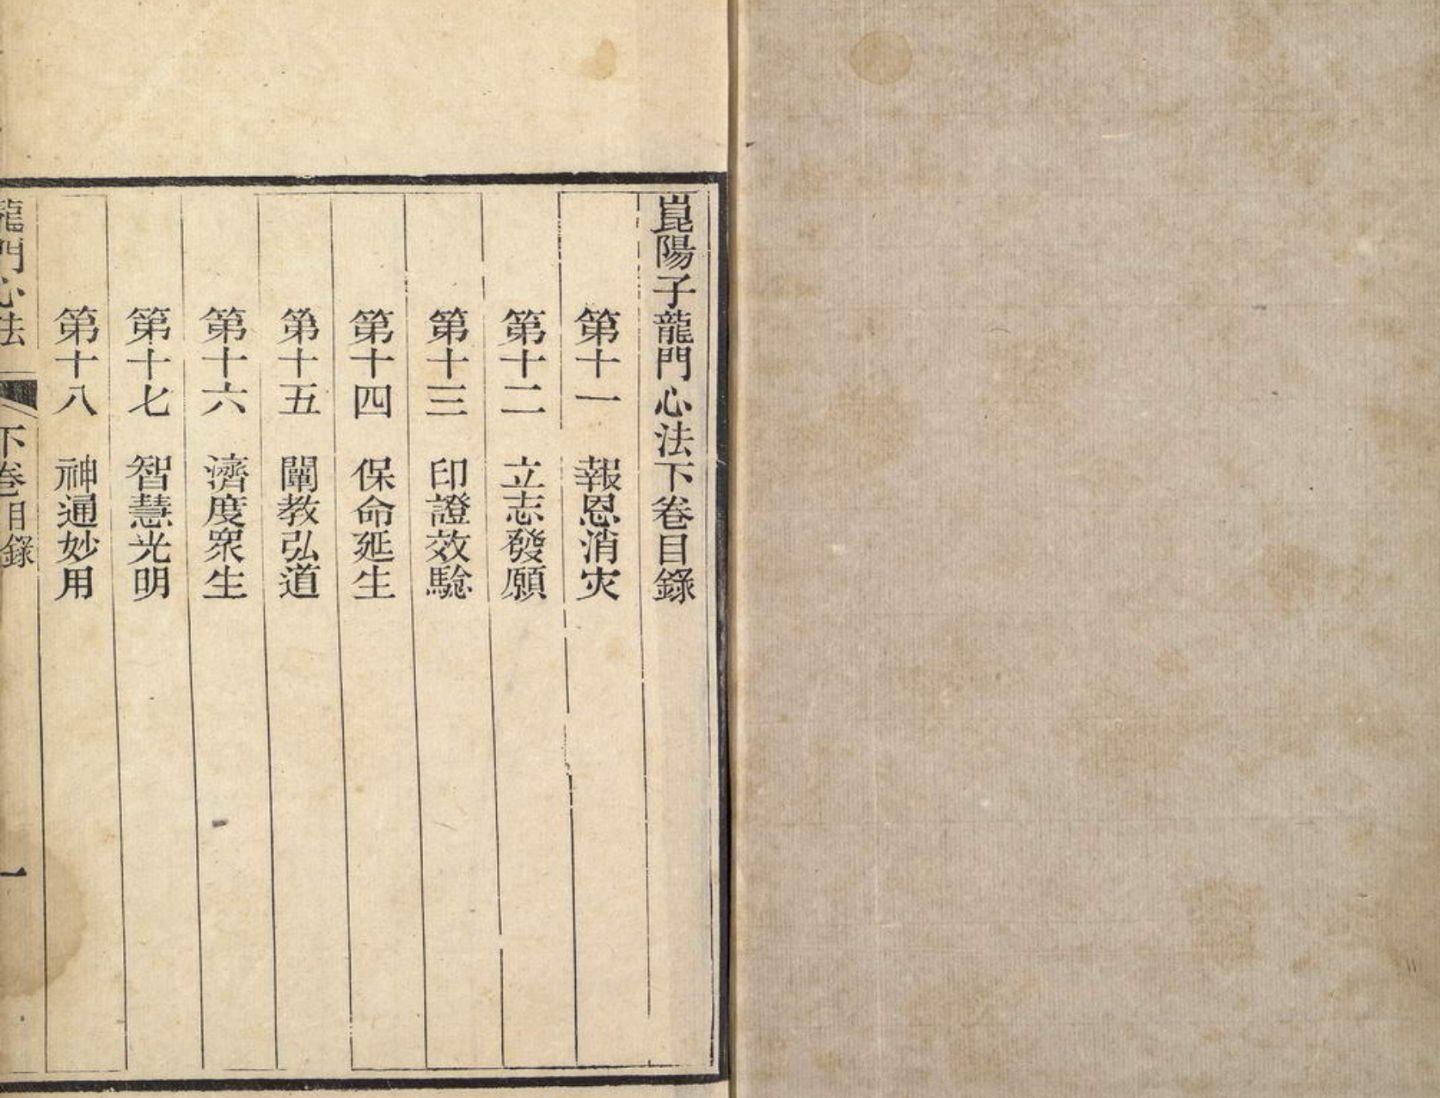 崑陽子龍門心法下卷目錄
第十一 報恩消灾
第十二 立志發願
第十三 印證效驗
第十四 保命延生
第十五 闡教弘道
第十六 濟度衆生
第十七 智慧光明
第十八 神通妙用
龍門心法 下卷目錄 一